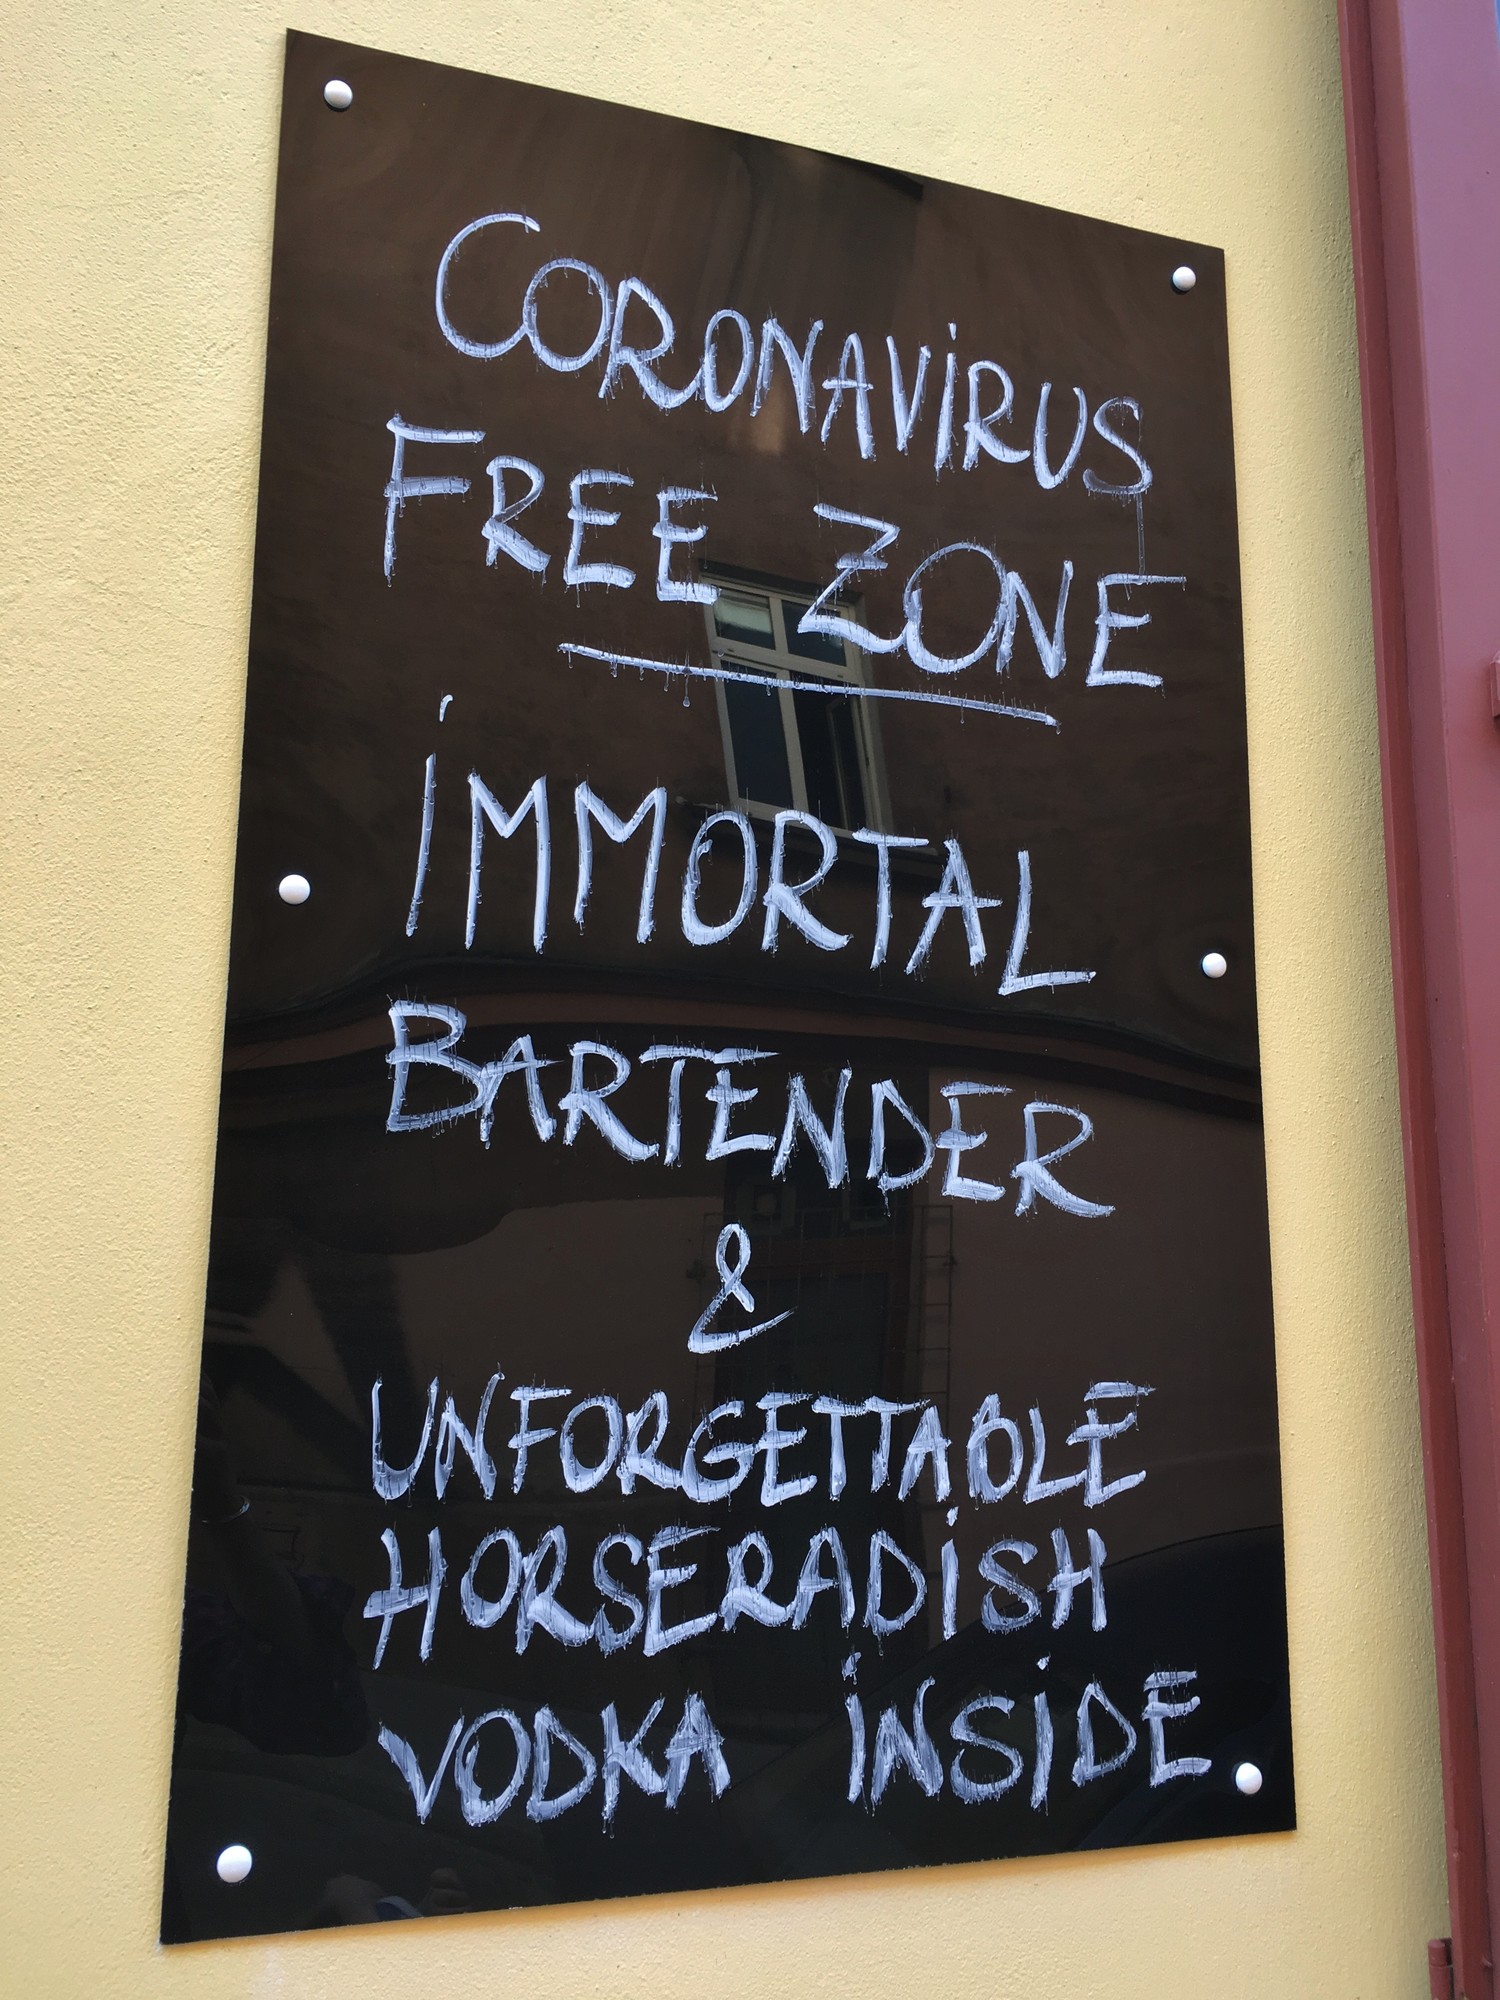 CORONAVİRUS
FREE ZONE
İMMORTAL
BARTENDER
&
UNFORGETTABLE
HORSERADİSH
VODKA İNSİDE